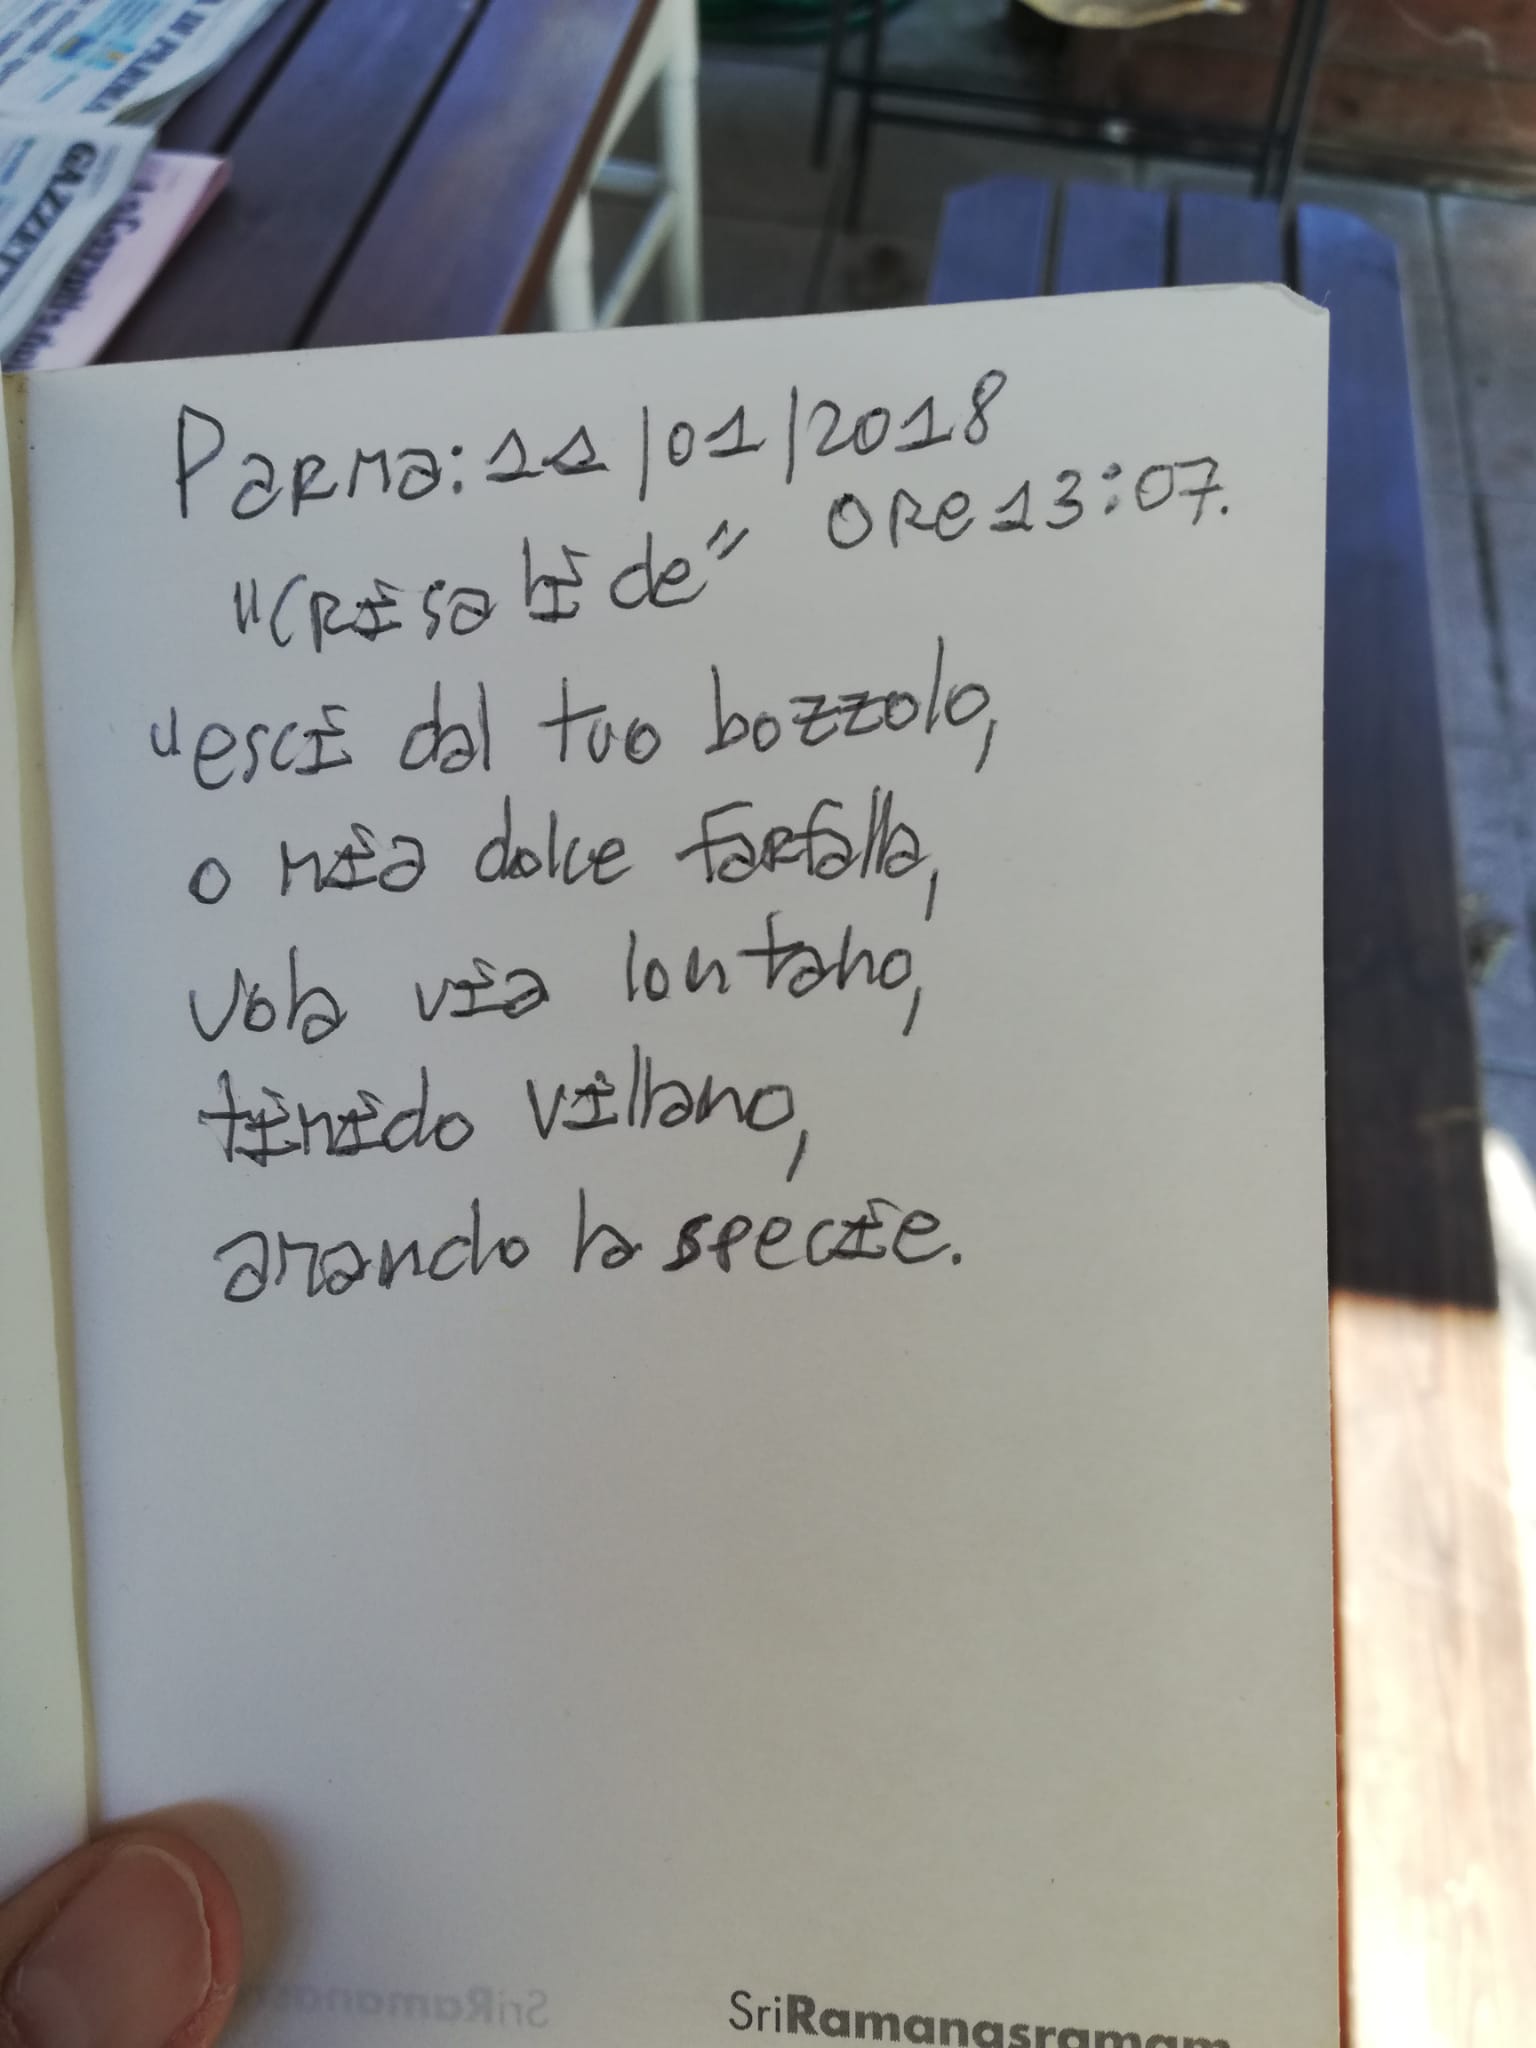 A DI PARMA
GAZZETT
Parma: 11/01/2018
ore 13:07.
"Crisalide"
"esci dal tuo bozzolo,
o mia dolce farfalla,
vola via lontano,
timido villano,
amando la specie.
SriRamanasramam